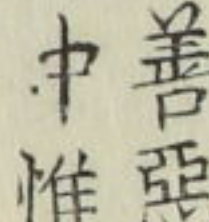 善惡
中惟